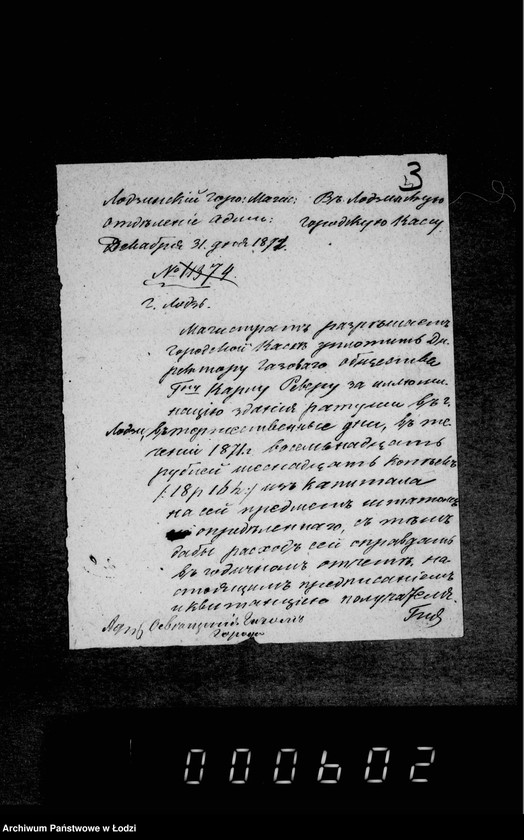 3
Лодзинскій Горо: Магис: Въ Лодзинскую
отдѣленіе Админ: Городскую Кассу
Декабря 31 дня 1871.
№ 11374.
г. Лодзь.
Магистратъ разрѣшаетъ
Городской Кассѣ уплотить Ди-
ректору Газоваго общества
Гну Карлу Реверу за иллюми-
націю зданія ратуши въ г.
Лодзи, въ торжественные дни, въ те-
ченіи 1871 г. восемьнадцать
рублей шеснадцать копѣекъ
/:18 р 16 к:/ изъ капитала
на сей предметъ штатомъ
опредѣленнаго, съ тѣмъ
дабы расходъ сей оправдать
въ годичномъ отчетѣ, на-
стоящимъ предписаніемъ
и квитанціею получателя.
города
000602
Archiwum Państwowe w Łodzi